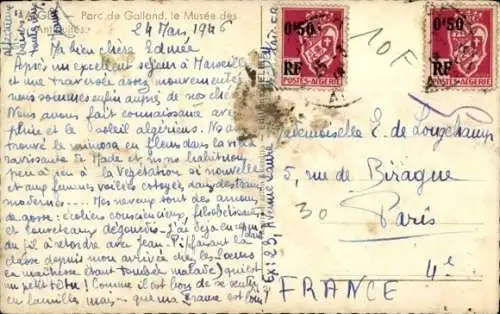 ALGER Parc de Galland, le Musée des
Antiquités
24 Mars 1946
Ma bien chère Edmée
Après un excellent séjour à Marseille
et une traversée assez mouvementée
nous sommes enfin auprès de nos
Nous avons fait connaissance avec
pluie et le soleil algérien. Nous
trouvé le mimosa en fleurs dans la villa
ravissante de Made et nous nous habituons
peu à peu à la végétation si nouvelle
et aux femmes voilées
modernes.... Mes neveux sont des amours
de gosse: écoliers consciencieux,
et
du fil à retordre avec Jean-P. faisant la
classe depuis mon arrivée chez les sœurs
(la maîtresse étant tombée malade) qui est
un petit têtu! Comme il est bon de se sentir
en famille mais que ma France est loin!
0f50
RF
POSTES-ALGERIE
0f50
RF
POSTES-ALGERIE
10F
Mademoiselle E. de Longchamps
5, rue de Biragne
30
Paris
4e
FRANCE